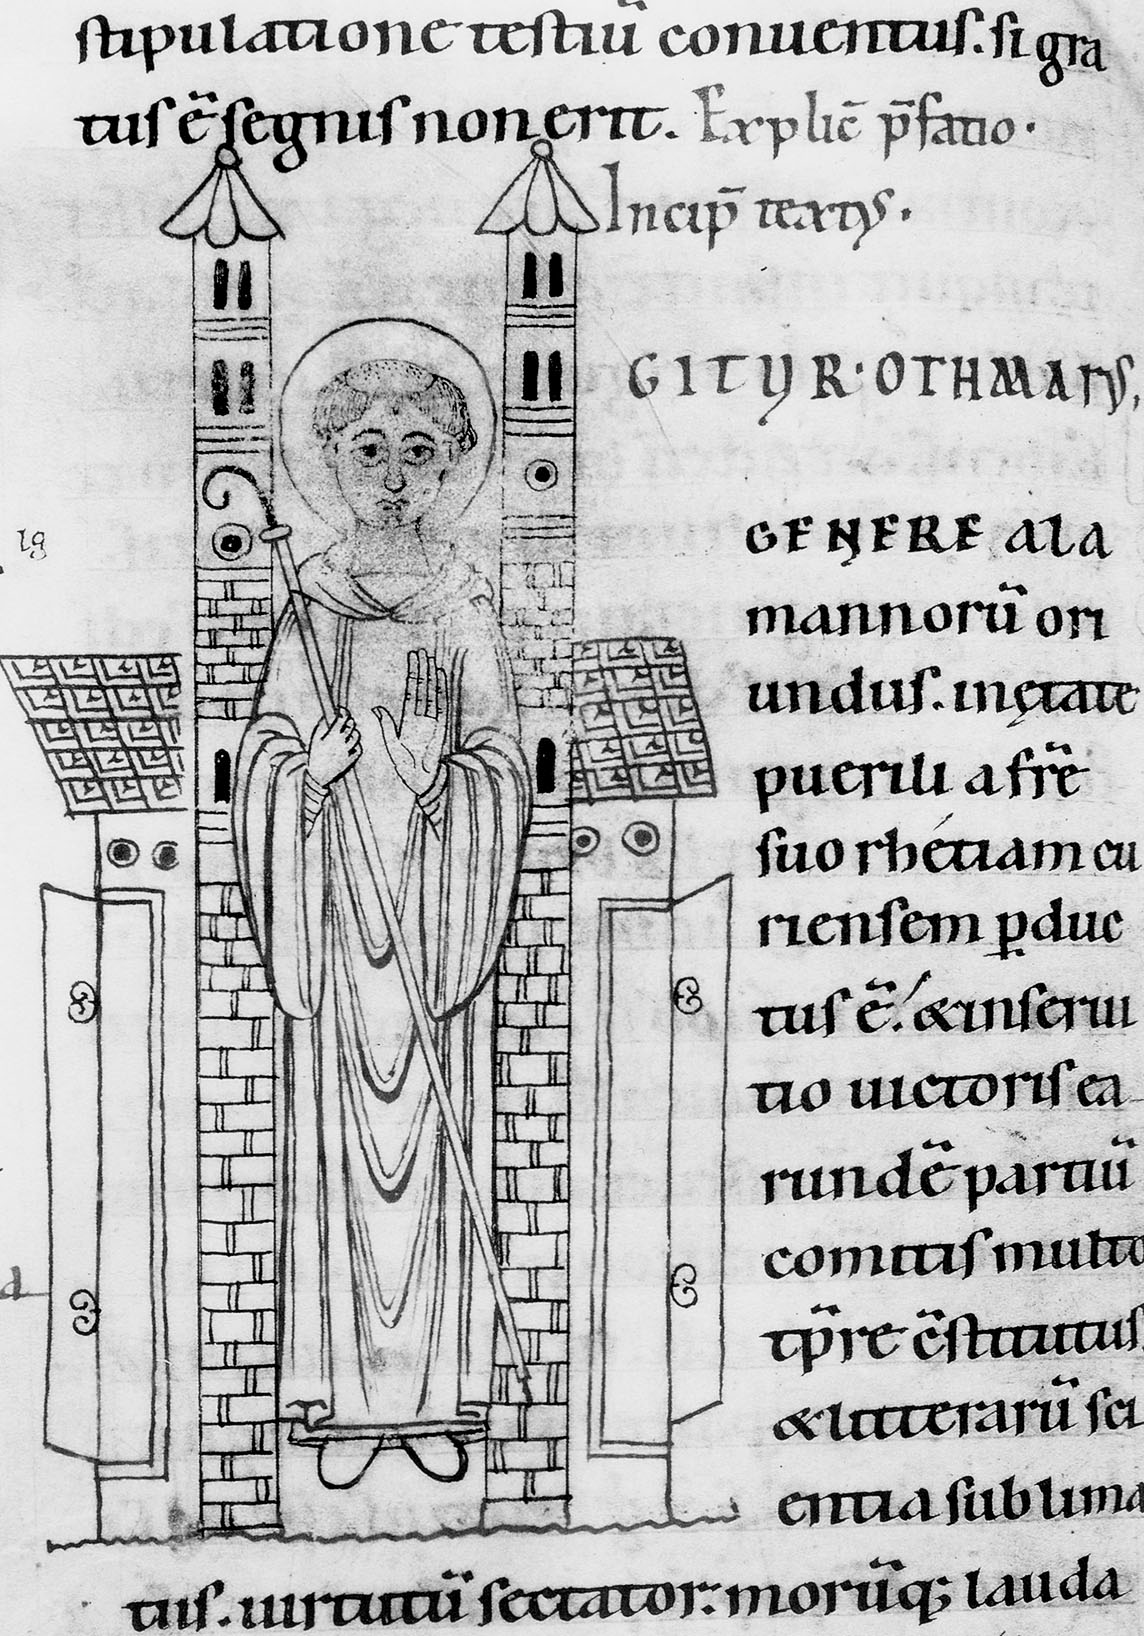 stipulatione testiū conuentus. si gra
tus ē segnis non erit. Explic̄ p̄fatio.
Incip̄ textus.
GITUR. OTHMARUS,
GENERE ala
mannorū ori
undus. in ętate
puerili a fr̄e
suo rhétiam cu
riensem ꝑduc
tus ē. & in serui
tio uictoris ea
rundē partiū
comitis multo
tp̄re c̄stitutus.
& litterarū sci
entia sublima
tus. uirtutū sectator. morūq; lauda